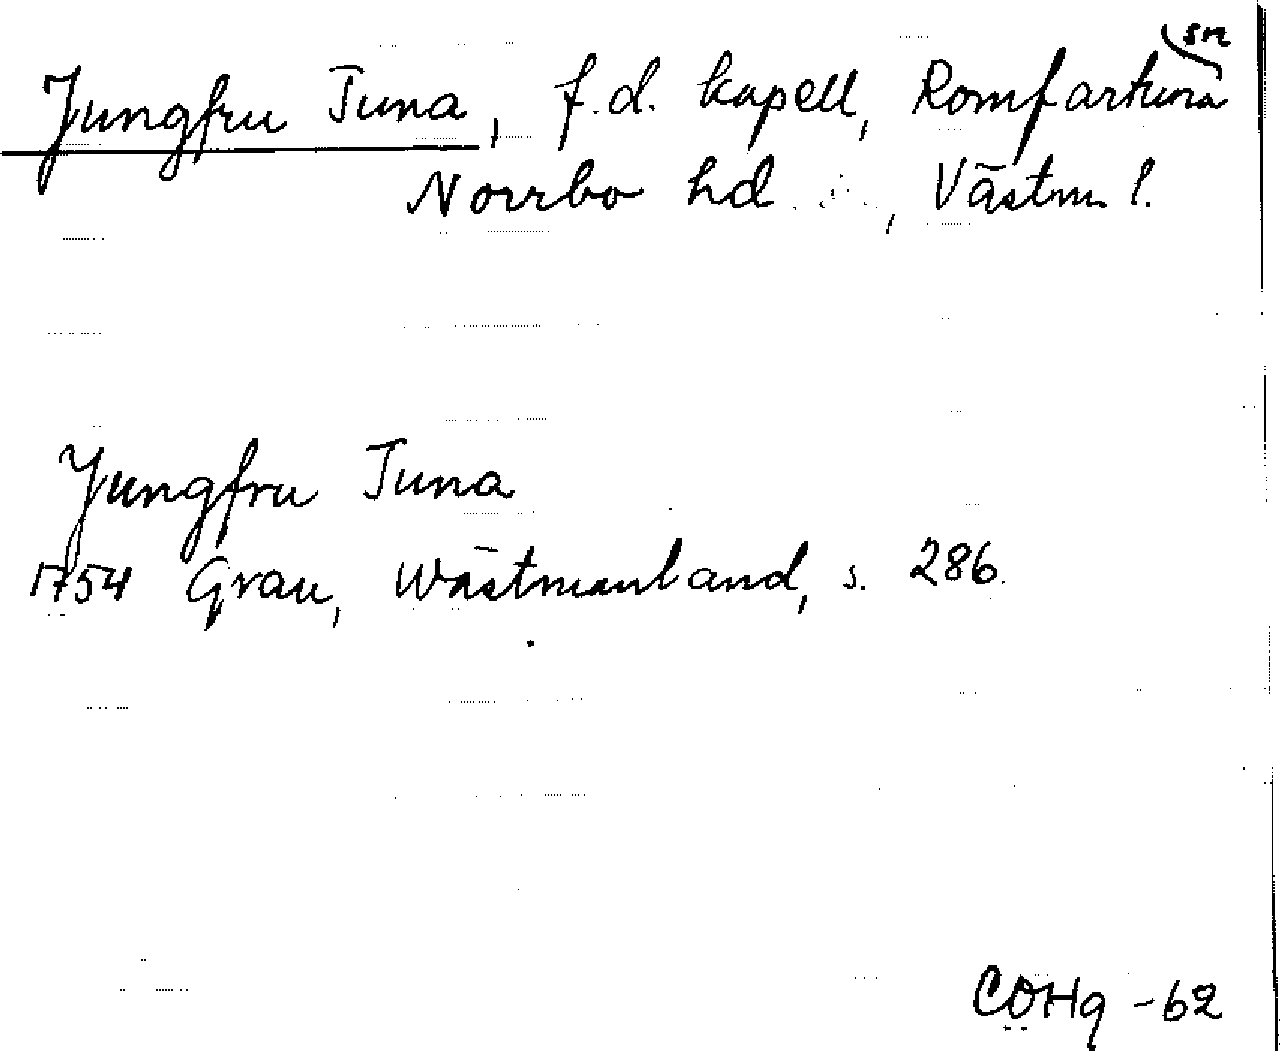 Jungfru Tuna, f.d. kapell, Romfartuna sn
Norrbo hd, Västm. l.
Jungfru Tuna
1754 Grau, Wästmanland, s. 286.
COHq -62